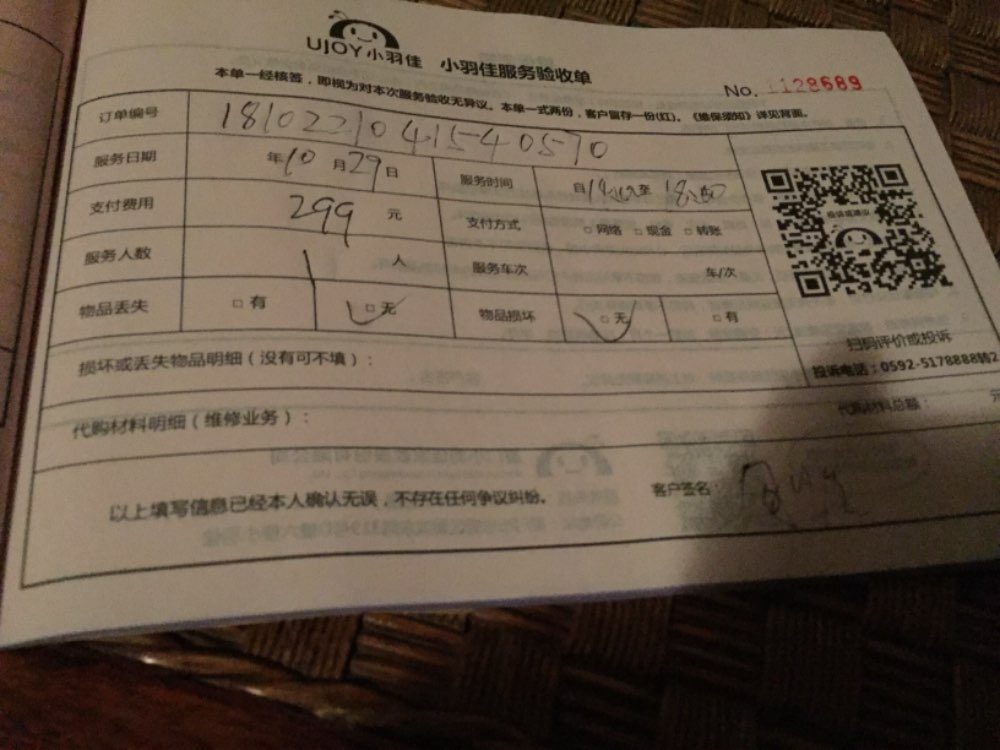 UJOY小羽佳 小羽佳服务验收单
No. 128689
本单一经核签，即视为对本次服务验收无异议。本单一式两份，客户留存一份(红)。《维保须知》详见背面。
订单编号 1810221041540570
服务日期 年10月29日 服务时间 自 至 18:00
支付费用 299 元 支付方式 □网络 □现金 □转账
服务人数 1 人 服务车次 车/次
物品丢失 □有 □无 物品损坏 □无 □有
投诉或建议
扫码评价或投诉
投诉电话：0592-5178888转2
损坏或丢失物品明细（没有可不填）：
代购材料明细（维修业务）： 代购材料总额： 元
以上填写信息已经本人确认无误，不存在任何争议纠纷。 客户签名：